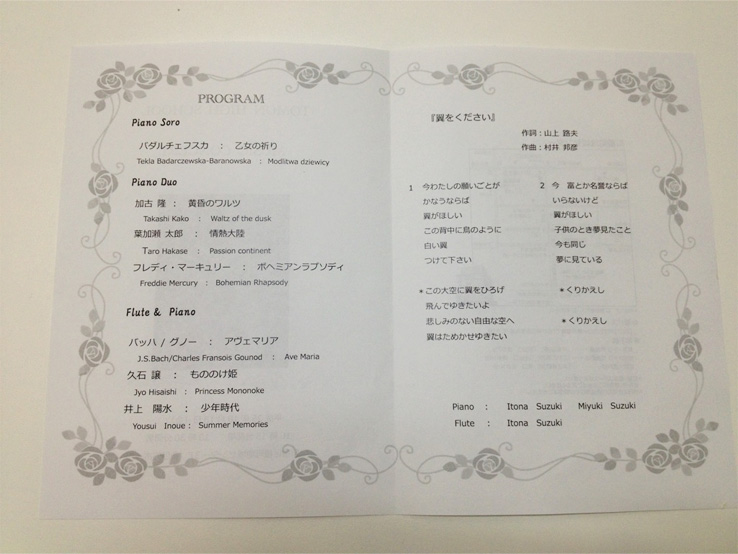 PROGRAM
Piano Soro
バダルチェフスカ ： 乙女の祈り
Tekla Badarczewska-Baranowska ： Modlitwa dziewicy
Piano Duo
加古 隆 ： 黄昏のワルツ
Takashi Kako ： Waltz of the dusk
葉加瀬 太郎 ： 情熱大陸
Taro Hakase ： Passion continent
フレディ・マーキュリー ： ボヘミアンラプソディ
Freddie Mercury ： Bohemian Rhapsody
Flute & Piano
バッハ / グノー ： アヴェマリア
J.S.Bach/Charles Fransois Gounod ： Ave Maria
久石 譲 ： もののけ姫
Jyo Hisaishi ： Princess Mononoke
井上 陽水 ： 少年時代
Yousui Inoue： Summer Memories
『翼をください』
作詞：山上 路夫
作曲：村井 邦彦
1 今わたしの願いごとが
かなうならば
翼がほしい
この背中に鳥のように
白い翼
つけて下さい
＊この大空に翼をひろげ
飛んでゆきたいよ
悲しみのない自由な空へ
翼はためかせゆきたい
2 今 富とか名誉ならば
いらないけど
翼がほしい
子供のとき夢見たこと
今も同じ
夢に見ている
＊くりかえし
＊くりかえし
Piano ： Itona Suzuki Miyuki Suzuki
Flute ： Itona Suzuki